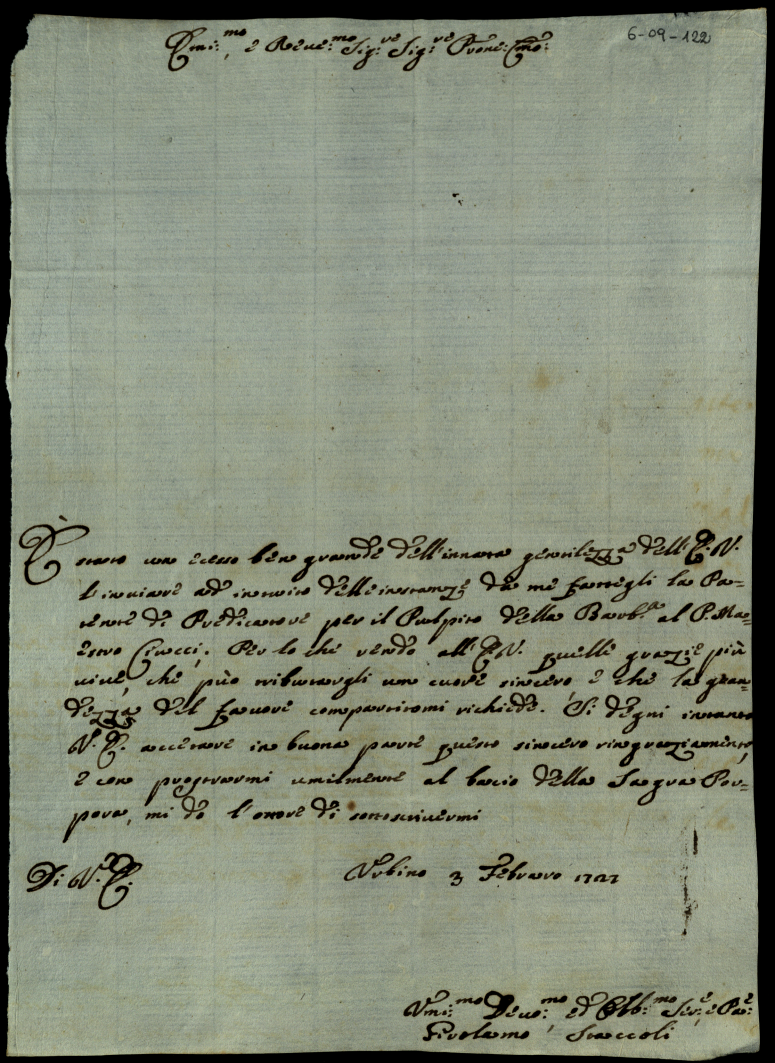 6-09-122
Emi:mo e Reue:mo Sig:re Sig:re Prone: Cmo:
È stato un ecesso ben grande dell'innata gentilezza dell'E.V.
l'inuiare ad intuito delle instanze da me fattegli la Pa=
tente di Predicatore per il Pulpito della Barb:a al P. Ma=
estro Ciucci; Per lo che rendo all'E.V. quelle grazie più
uiue, che può tributargli un cuore sincero e che la gran=
dezza del fauore compartitomi richiede. Si degni intanto
V.E. accettare in buona parte questo sincero ringraziamento,
e con prostrarmi umilmente al bacio della Sagra Por=
pora, mi do l'onore di sottoscriuermi
Di V.E. Vrbino 3 Febraro 1727
Vmi:mo Deuo:mo ed Obb:mo Ser:e e
Girolamo Staccoli